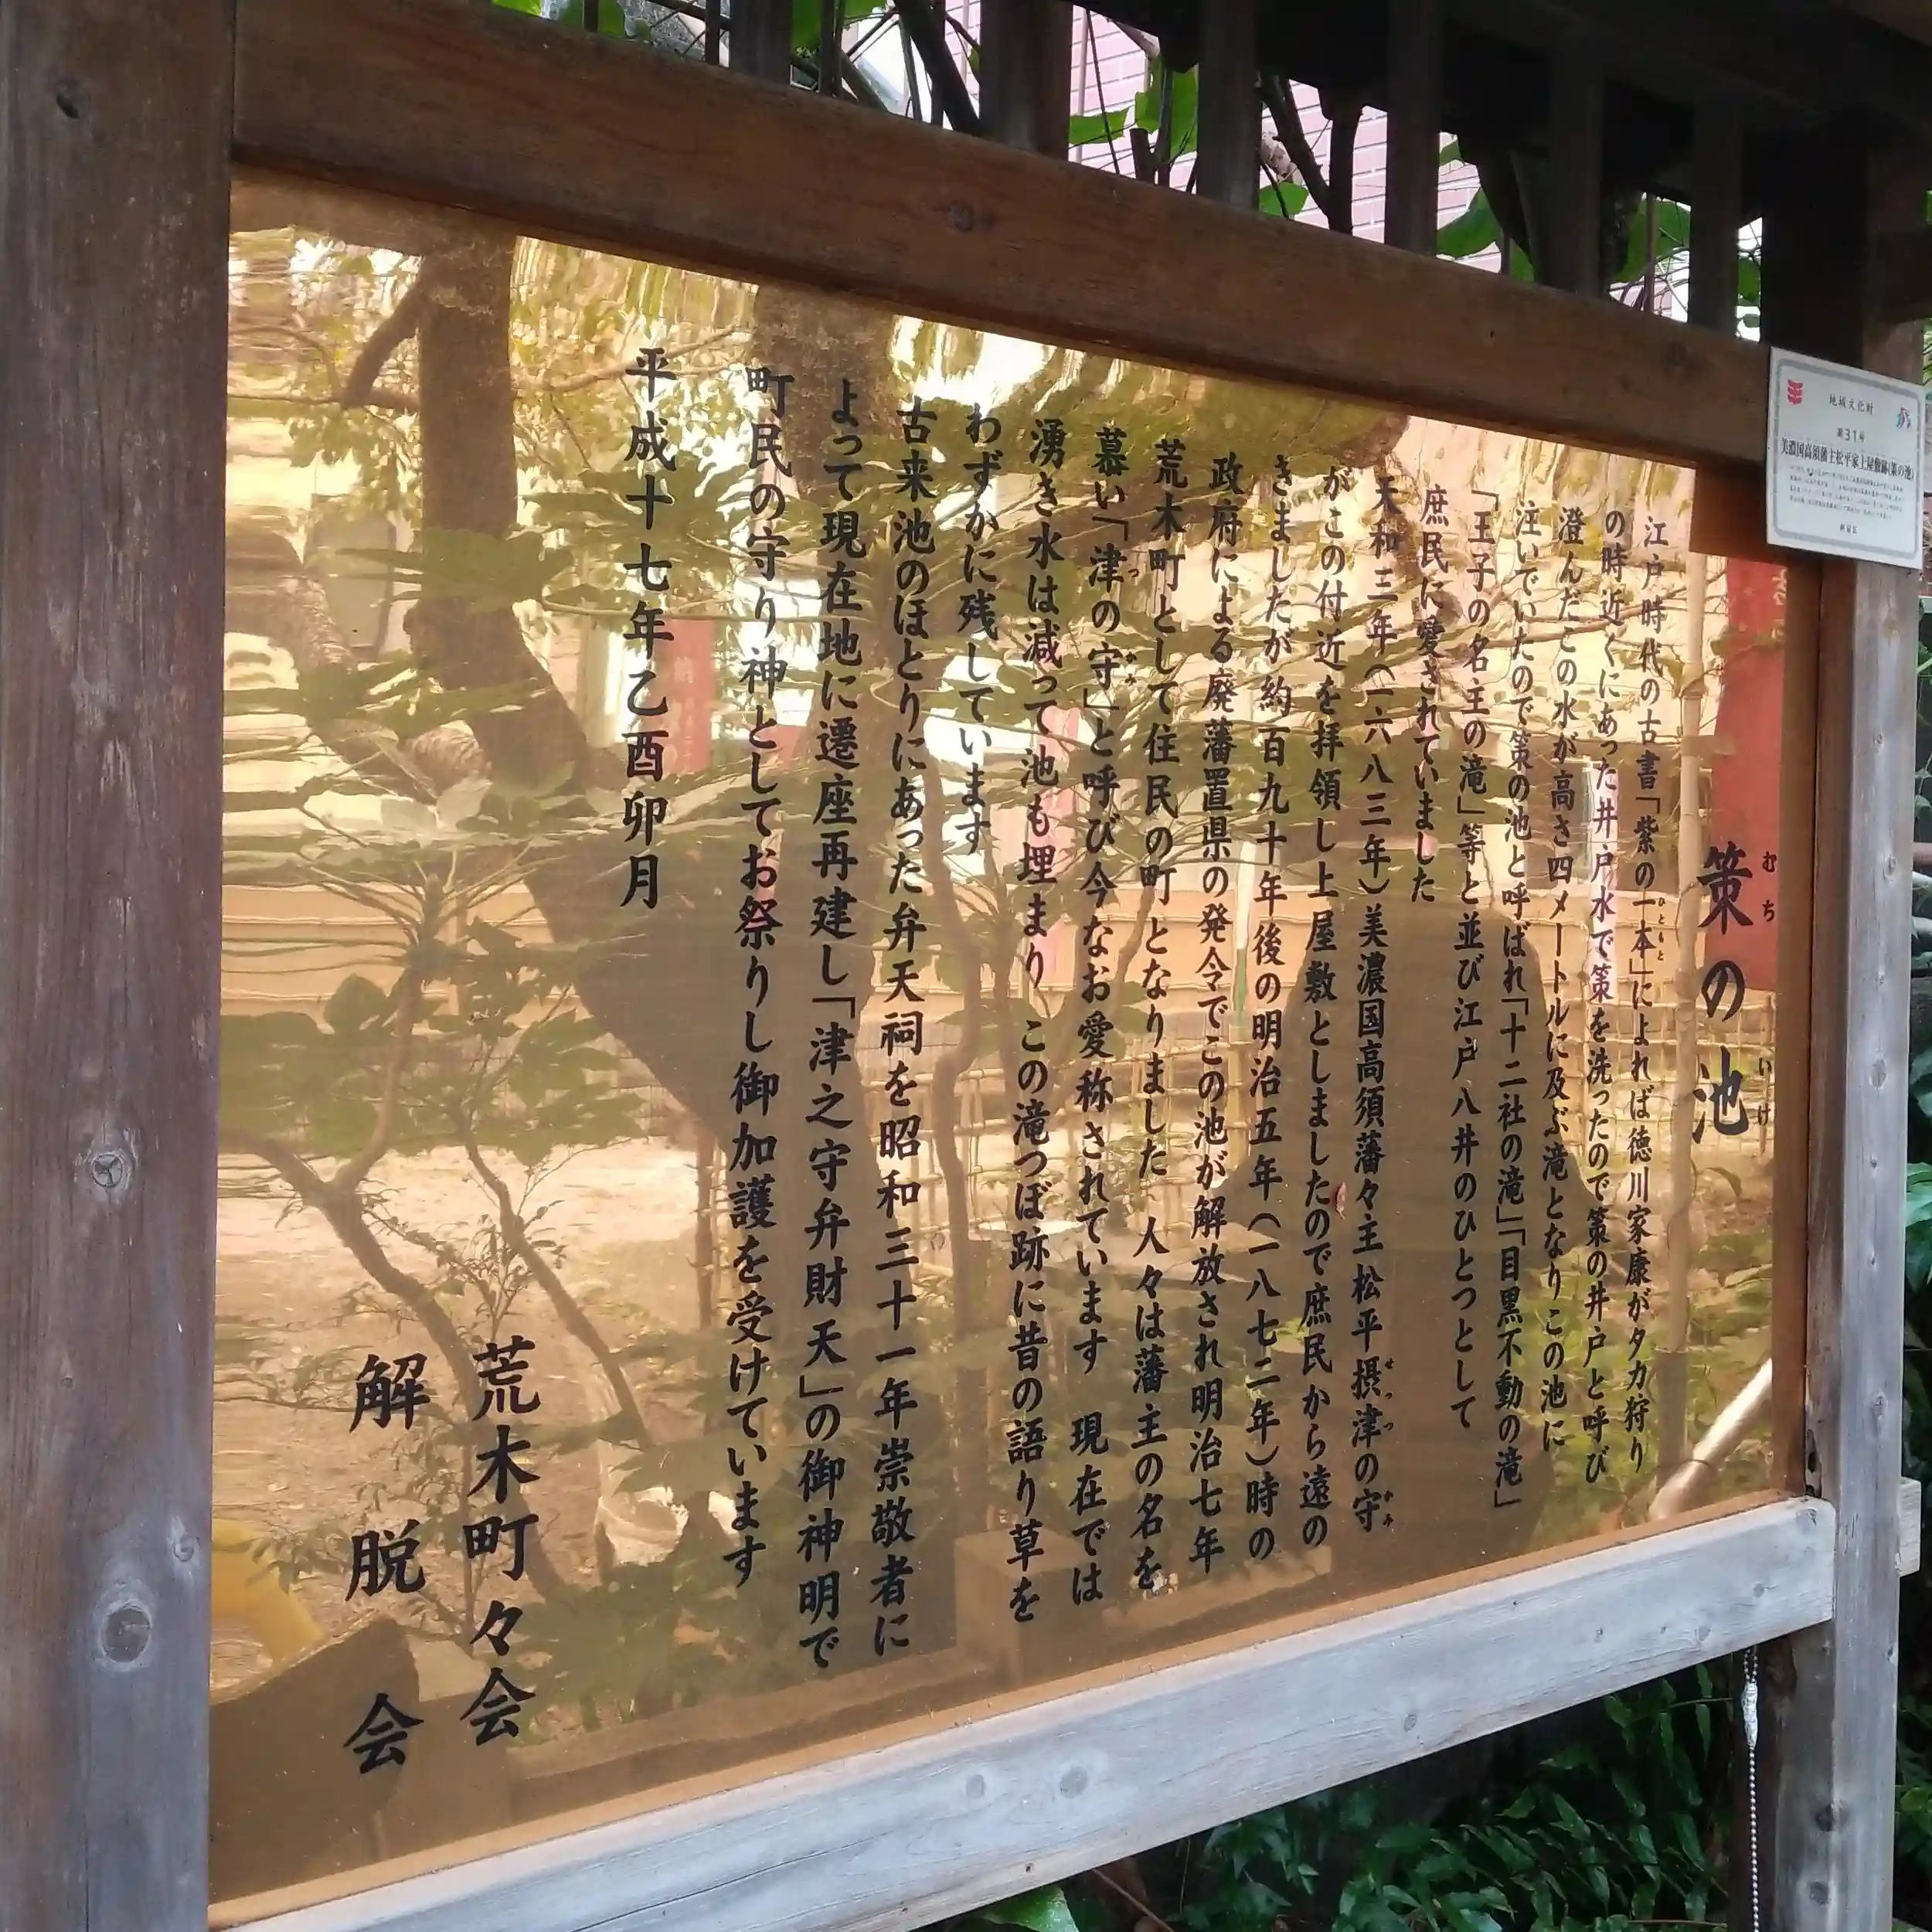 策の池
むち いけ
江戸時代の古書「紫の一本」によれば徳川家康がタカ狩り
ひともと
の時近くにあった井戸水で策を洗ったので策の井戸と呼び
澄んだこの水が高さ四メートルに及ぶ滝となりこの池に
注いでいたので策の池と呼ばれ「十二社の滝」「目黒不動の滝」
「王子の名主の滝」等と並び江戸八井のひとつとして
庶民に愛されていました
天和三年(一六八三年)美濃国高須藩々主松平摂津の守
せっつ かみ
がこの付近を拝領し上屋敷としましたので庶民から遠の
きましたが約百九十年後の明治五年(一八七二年)時の
政府による廃藩置県の発令でこの池が解放され明治七年
荒木町として住民の町となりました 人々は藩主の名を
慕い「津の守」と呼び今なお愛称されています 現在では
つ かみ
湧き水は減って池も埋まり この滝つぼ跡に昔の語り草を
わずかに残しています
古来池のほとりにあった弁天祠を昭和三十一年崇敬者に
よって現在地に遷座再建し「津之守弁財天」の御神明で
町民の守り神としてお祭りし御加護を受けています
平成十七年乙酉卯月
荒木町々会
解脱会
地域文化財
第31号
美濃国高須藩主松平家上屋敷跡(策の池)
新宿区